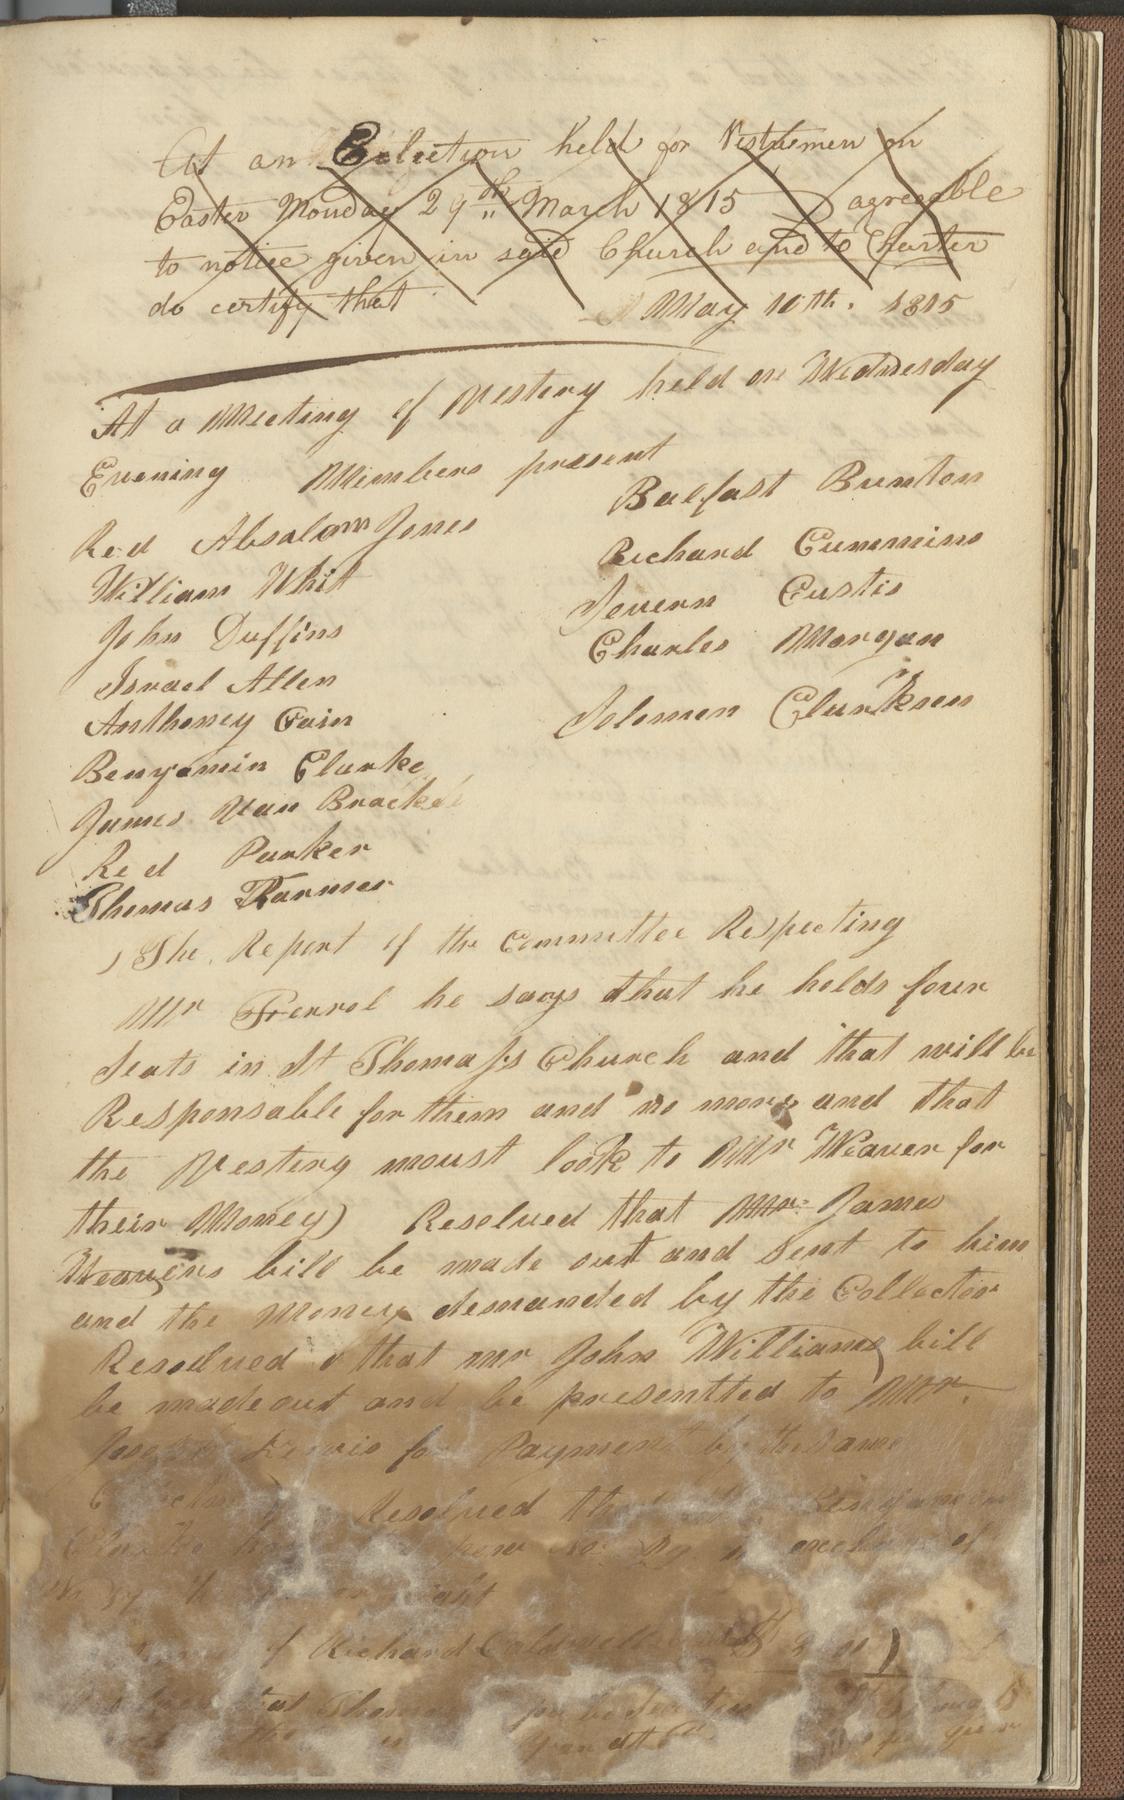 At an Eelection held for Vestremen on
Easter Monday 29th March 1815 agreeable
to notice given in said Church and to Charter
do certify that
May 10th. 1815
At a Meeting of Vestery held on Wednesday
Evening Members present
Red Absalom Jones
William Whit
John Duffins
Israel Allen
Anthoney Cain
Benyamin Clarke
James Van Bracke
Red Parker
Thomas Farmer
Balfast Bunton
Richard Cummins
Severn Custis
Charles Morgan
Solomon Clarkson
The Report of the Committee Respecting
Mr Ferrol he says that he holds four
Seats in St Thomass Church and that will be
Responsable for them and no more and that
the Vestery moust look to Mr Weaver for
their Money) Resolved that Mr James
Weavers bill be made out and Sent to him
and the Money demanded by the Collector
Resolved that mr John Williams bill
be made out and be presentted to Mr.
Lewis for Payment by the Same
Resolved
of Richard